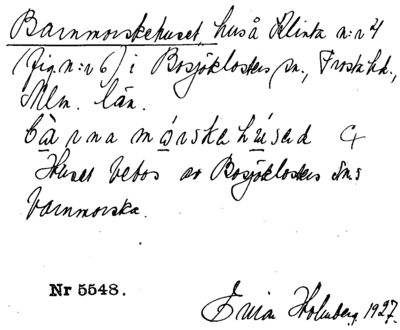 Barnmorskehuset, hus å Klinta n:r 4
(fig. n:r 6) i Bosjöklosters sn., Frosta hd.,
Mlm. län.
bàrnamórskahúsad
Huset bebos av Bosjöklosters sns
barnmorska.
Nr 5548.
Erica Holmberg 1927.